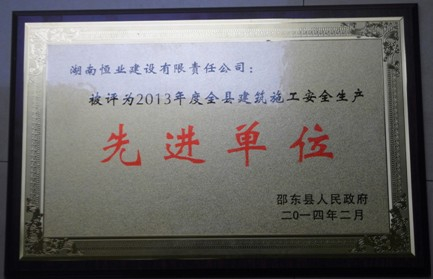 湖南恒业建设有限责任公司：
被评为2013年度全县建筑施工安全生产
先进单位
邵东县人民政府
二〇一四年二月